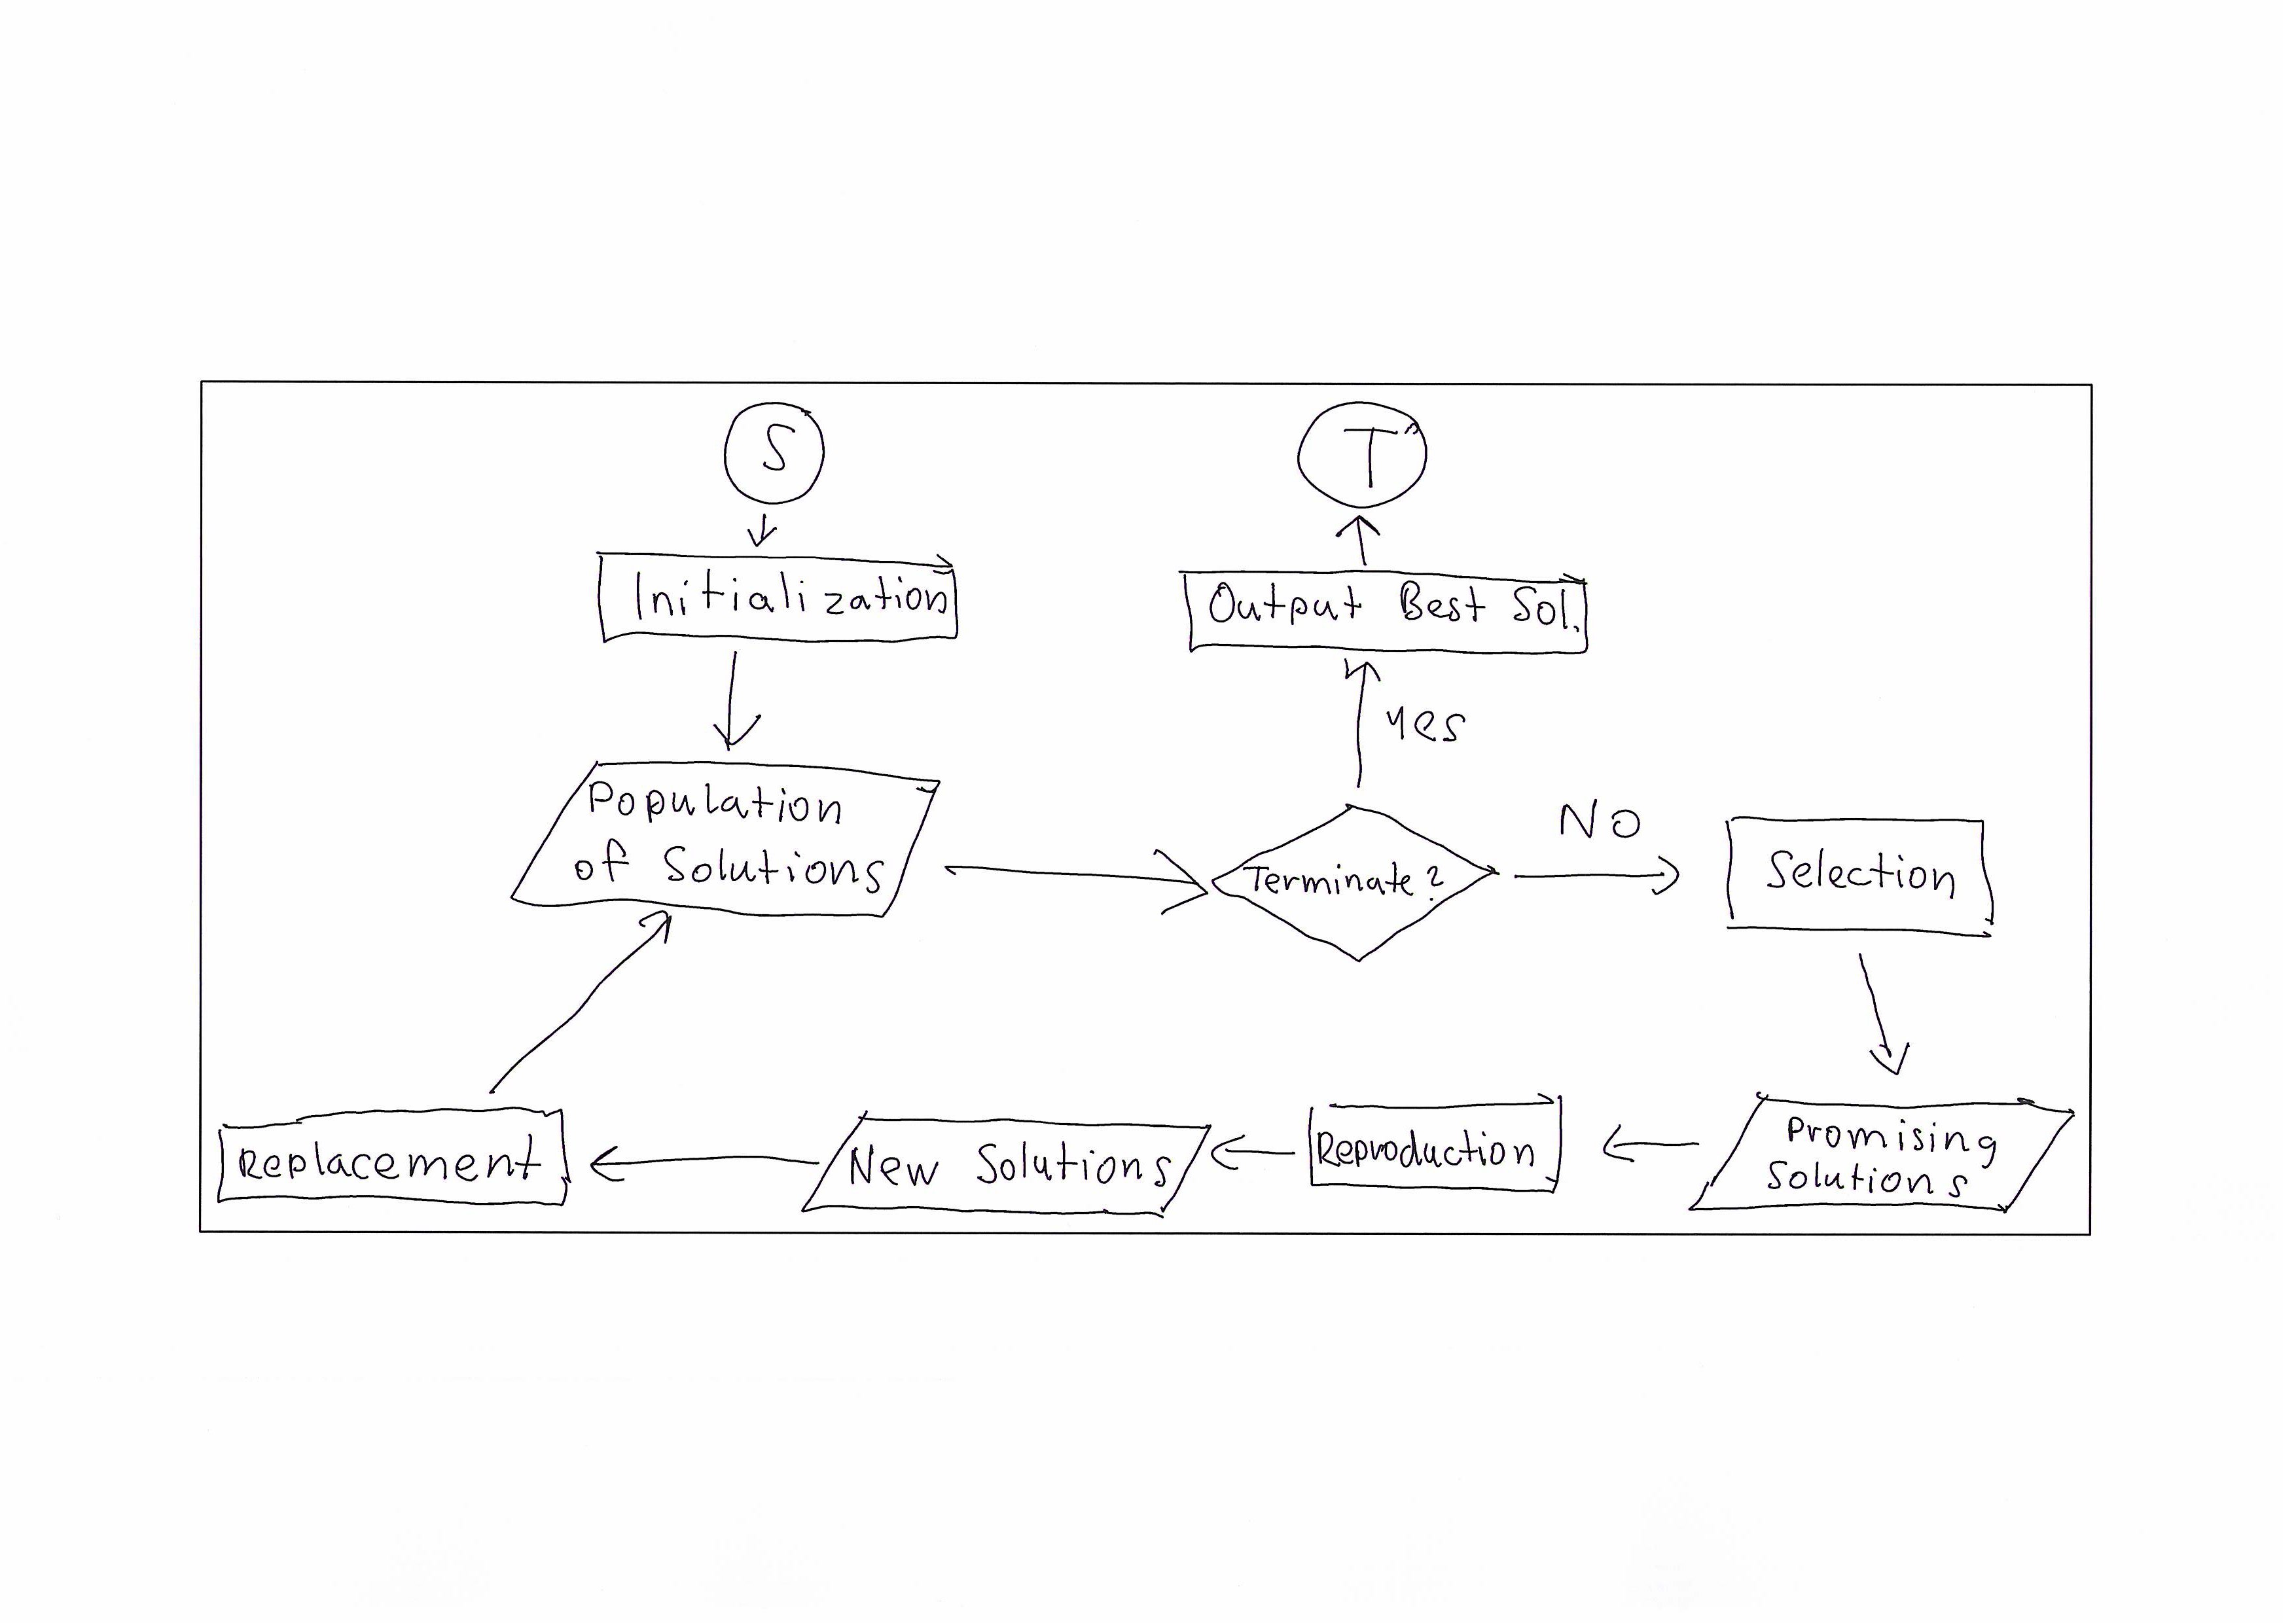 S
T
Initialization
Output Best Sol.
Yes
Population
of Solutions
Terminate?
NO
Selection
Replacement
New Solutions
Reproduction
Promising
Solutions